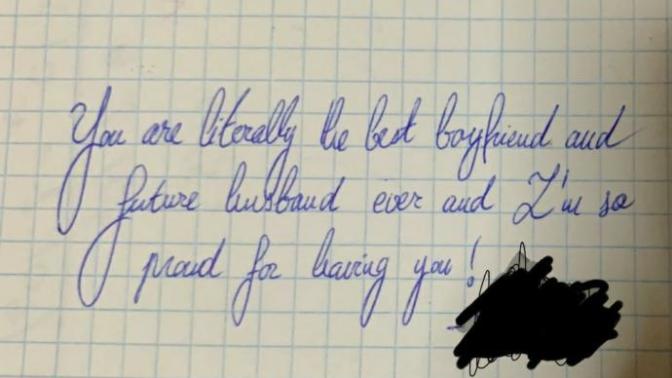 You are literally the best boyfriend and
future husband ever and I'm so
proud for having you!